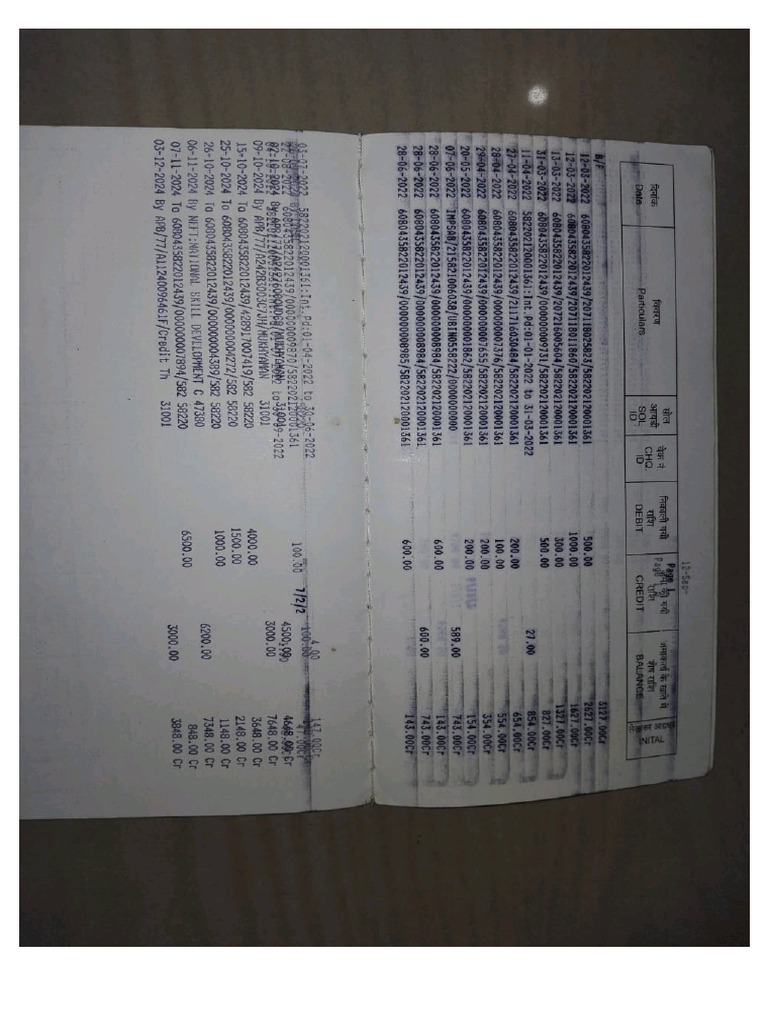 12-Sep-
Page 1
दिनांक विवरण सोल आयडी चेक नं निकाली गयी राशि जमा की गयी राशि जमाकर्ता के खाते में शेष राशि
Date Particulars SOL ID CHQ. ID DEBIT CREDIT BALANCE INITAL
B/F 3127.00Cr
12-03-2022 608043582201 2439/207118025823/582202120001361 500.00 2627.00Cr
12-03-2022 6080435822012439/207118011860/582202120001361 1000.00 1627.00Cr
13-03-2022 6080435822012439/207216005604/582202120001361 300.00 1327.00Cr
31-03-2022 6080435822012439/000000009731/582202120001361 500.00 827.00Cr
11-04-2022 582202120001361:Int.Pd:01-01-2022 to 31-03-2022 27.00 854.00Cr
27-04-2022 6080435822012439/211716030484/582202120001361 200.00 654.00Cr
28-04-2022 6080435822012439/000000007376/582202120001361 100.00 554.00Cr
29-04-2022 6080435822012439/000000007655/582202120001361 200.00 354.00Cr
20-05-2022 6080435822012439/000000001862/582202120001361 200.00 151.00Cr
07-06-2022 IMPSAB/215821006038/UBIN0558222/0000000000 589.00 743.00Cr
28-06-2022 6080435822012439/000000008984/582202120001361 600.00 143.00Cr
28-06-2022 6080435822012439/000000008984/582202120001361 600.00 743.00Cr
28-06-2022 6080435822012439/000000008985/582202120001361 600.00 143.00Cr
03-07-2022 582202120001361:Int.Pd:01-04-2022 to 30-06-2022 4.00 147.00Cr
6080435822012439/000000009870/582202120001361 100.00 47.00Cr
4500.00 4648.00 Cr
3000.00 7648.00 Cr
09-10-2024 By APB/77/A242B3003C7JH/MUKHYAMAN 31001
15-10-2024 To 6080435822012439/428917007419/582 58220 4000.00 3648.00 Cr
25-10-2024 To 6080435822012439/000000004272/582 58220 1500.00 2148.00 Cr
26-10-2024 To 6080435822012439/000000004389/582 58220 1000.00 1148.00 Cr
06-11-2024 By NEFT:NATIONAL SKILL DEVELOPMENT C 47380 6200.00 7348.00 Cr
07-11-2024 To 6080435822012439/000000007894/582 58220 6500.00 848.00 Cr
03-12-2024 By APB/77/A11240096461F/Credit Th 31001 3000.00 3848.00 Cr